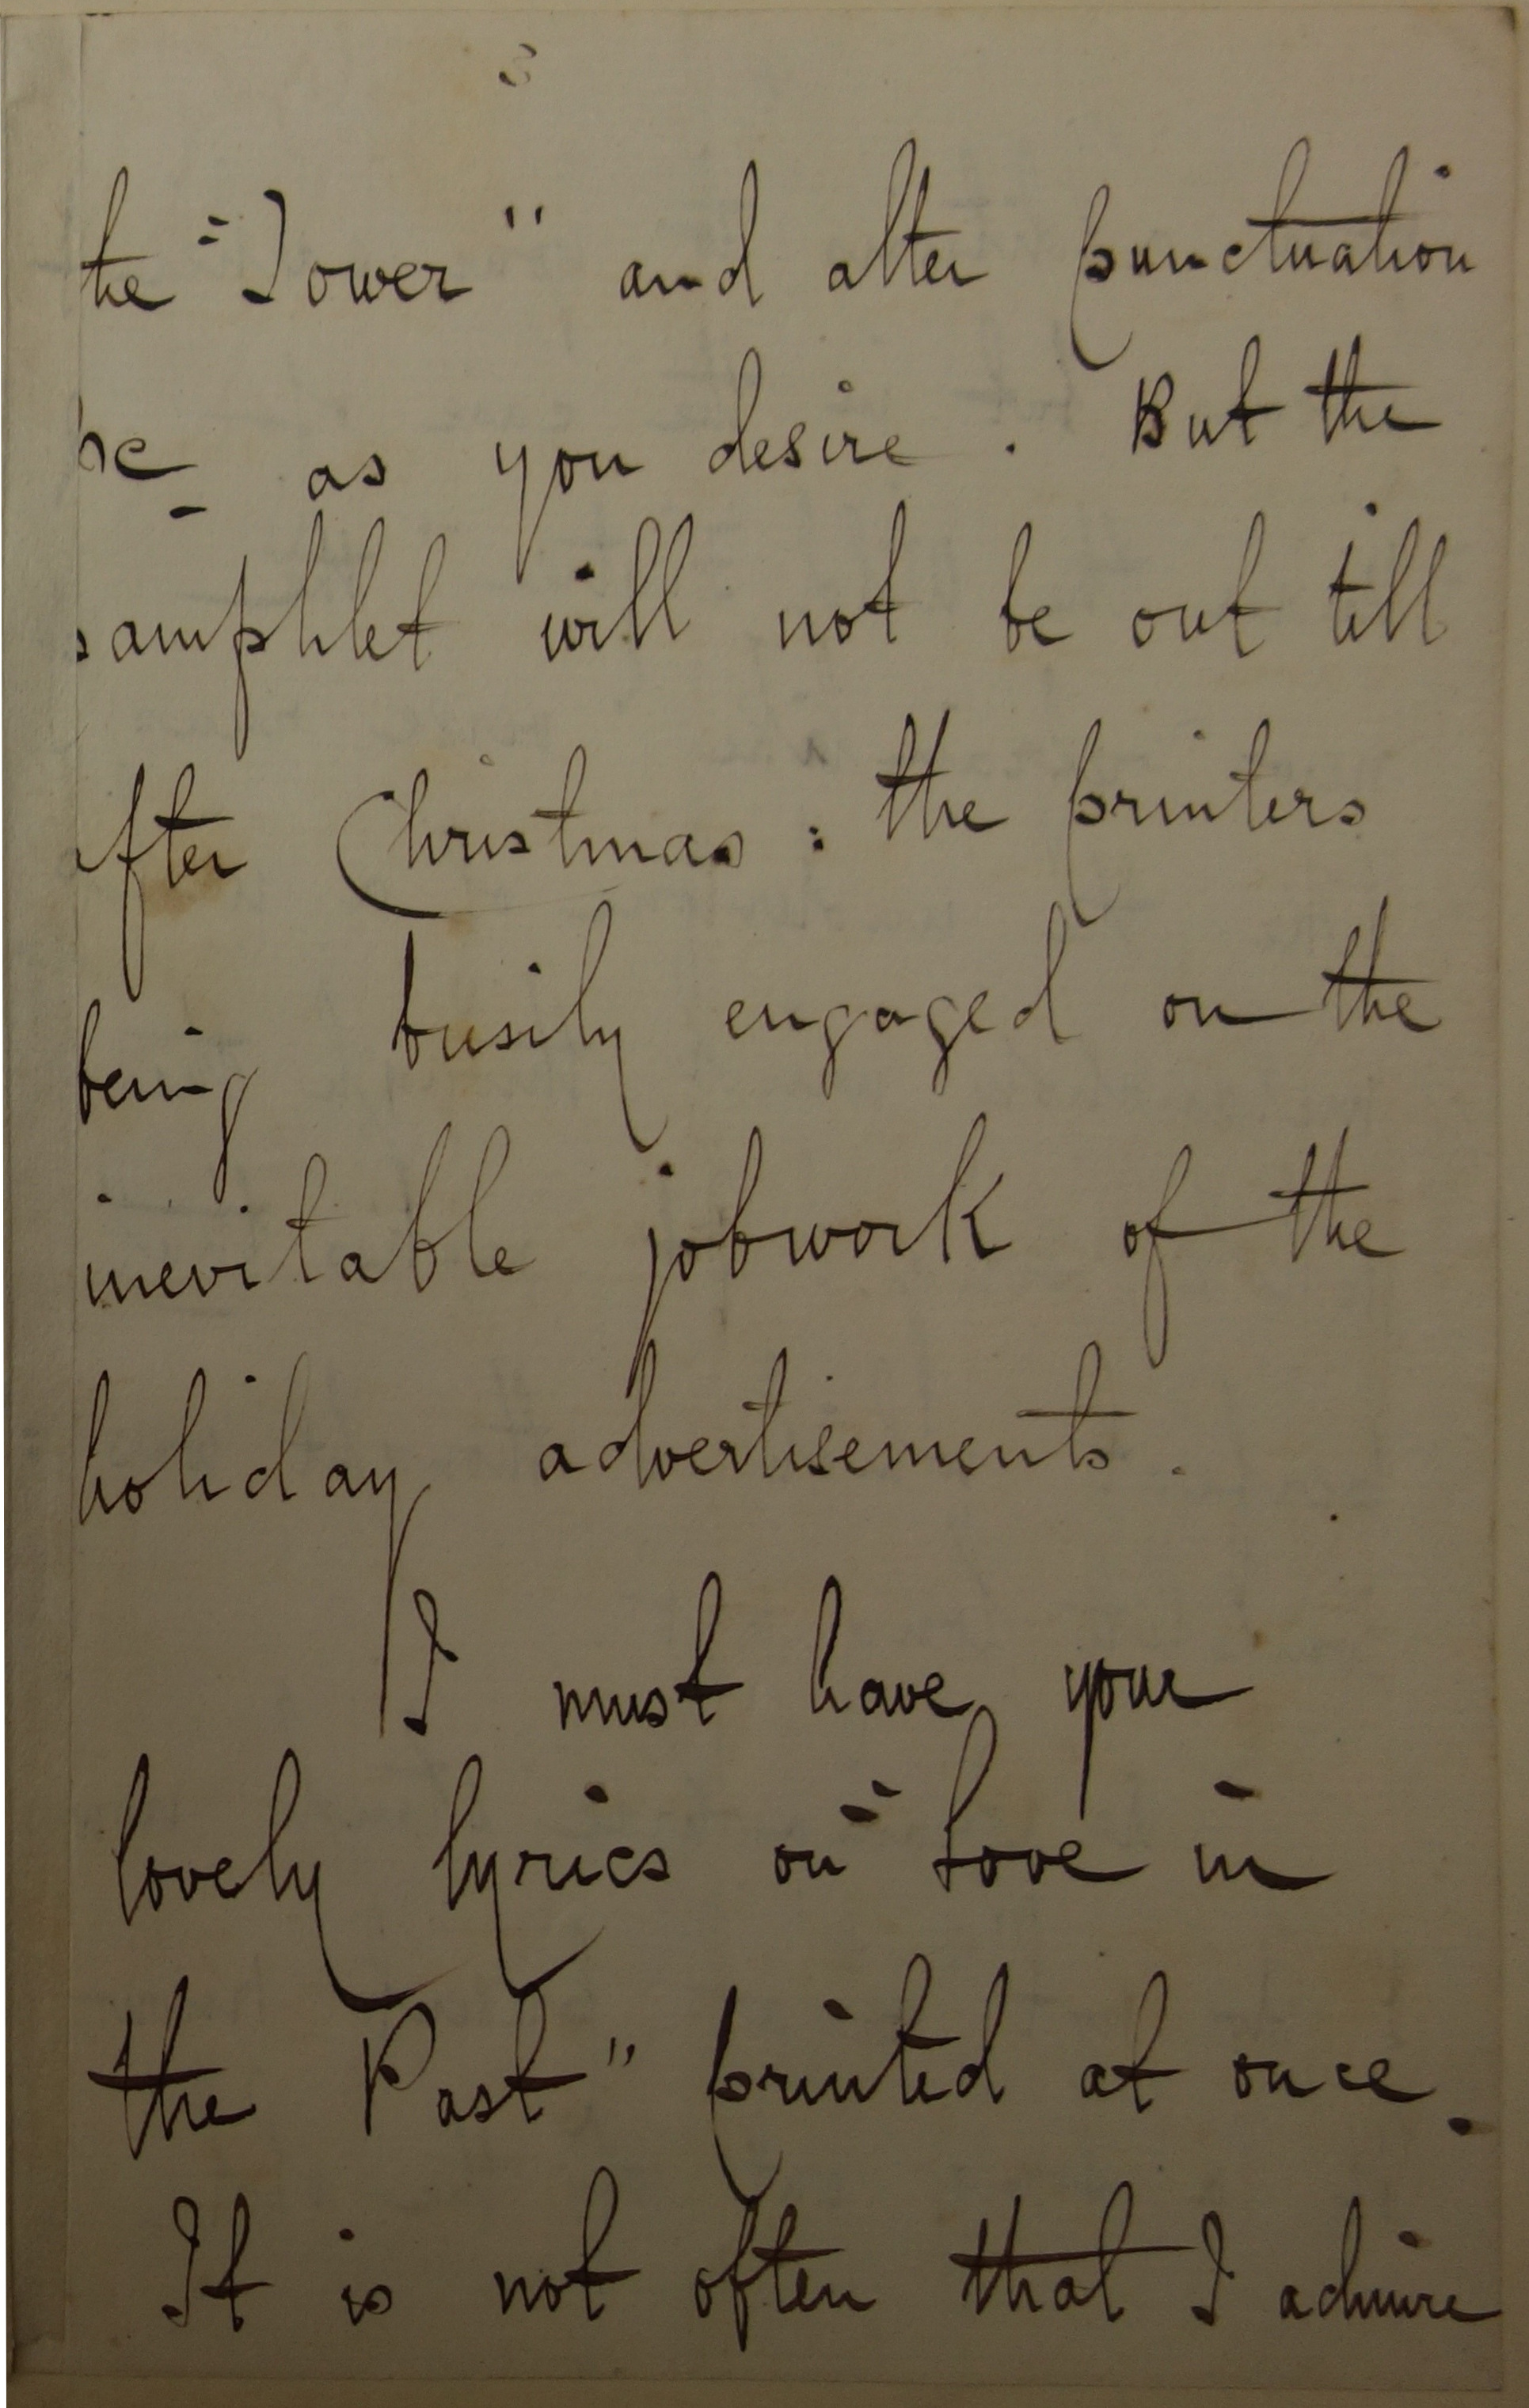 the "Tower" and alter punctuation
&c as you desire. But the
pamphlet will not be out till
after Christmas: the printers
being busily engaged on the
inevitable jobwork of the
holiday advertisements.
I must have your
lovely lyrics on "Love in
the Past" printed at once.
It is not often that I admire